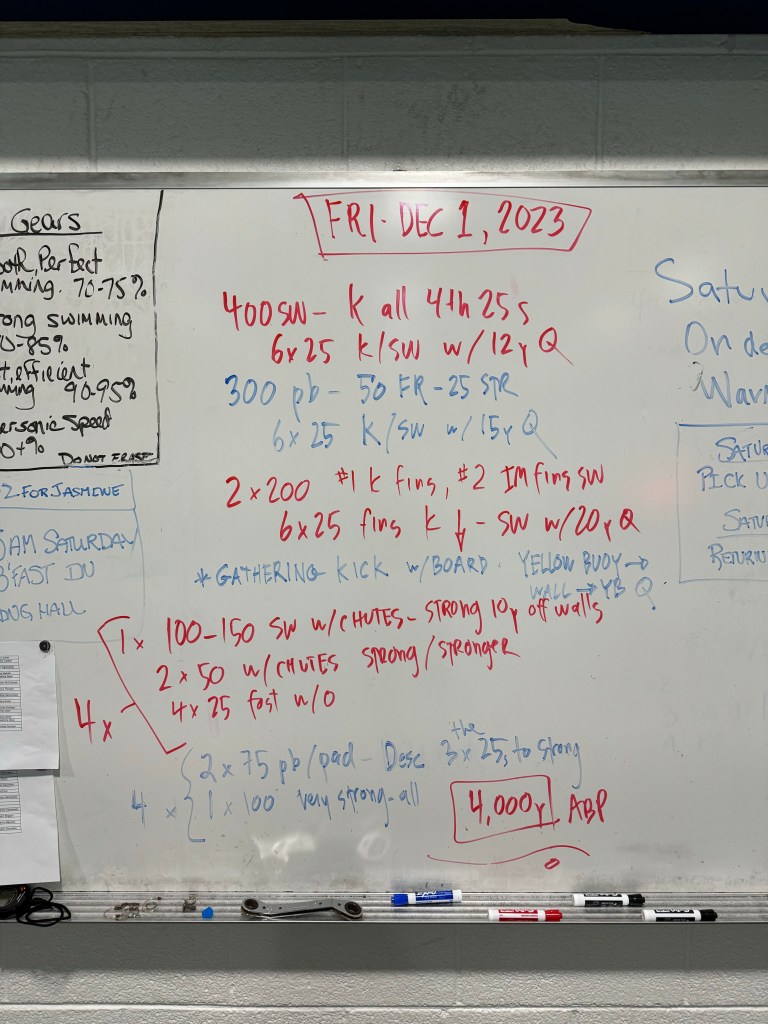 Gears
Perfect
mming. 70-75%
ong swimming
0-85%
t, efficient
mming 90-95%
ersonic Speed
0+%
DO NOT ERASE
2 FOR JASMINE
AM SATURDAY
FAST IN
HALL
FRI. DEC 1, 2023
400 SW - K all 4th 25s
6x25 K/SW w/12y Q
300 pb - 50 FR-25 STR
6x25 K/SW w/15y Q
2x200 #1 K fins, #2 IM fins SW
6x25 fins K ↓ - SW w/20y Q
* GATHERING KICK w/BOARD. YELLOW BUOY →
WALL → YB Q
4x
1x 100-150 SW w/CHUTES - STRONG 10y off walls
2x50 w/CHUTES STRONG/STRONGER
4x25 fast w/o
4 x
2x75 pb/pad - Desc the 3x25s to strong
1x100 very strong-all
4,000y ABP
Satu
On de
Warm
SATUR
PICK U
SATU
RETURN